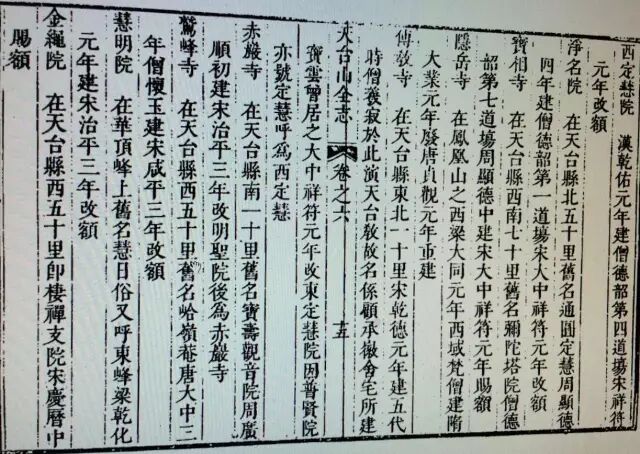 西定慧院　漢乾佑元年建僧德韶第四道場宋祥符
元年改額
淨名院　在天台縣北五十里舊名通圓定慧周顯德
四年建僧德韶第一道場宋大中祥符元年改額
寶相寺　在天台縣西南七十里舊名彌陀塔院僧德
韶第七道場周顯德中建宋大中祥符元年賜額
隱岳寺　在鳳凰山之西梁大同元年西域梵僧建隋
大業元年廢唐貞觀元年重建
傳教寺　在天台縣東北一十里宋乾德元年建五代
時僧羲寂於此演天台教故名係顧承徽舍宅所建
天台山全志　卷之六　十五
寶雲曾居之大中祥符元年改東定慧院因普賢院
亦號定慧呼為西定慧
赤巖寺　在天台縣南一十里舊名寶壽觀音院周廣
順初建宋治平三年改明聖院後為赤巖寺
鷲峰寺　在天台縣西五十里舊名峇嶺菴唐大中三
年僧懷玉建宋咸平三年改額
慧明院　在華頂峰上舊名慧日俗又呼東峰梁乾化
元年建宋治平三年改額
金繩院　在天台縣西五十里卽棲禪支院宋慶曆中
賜額